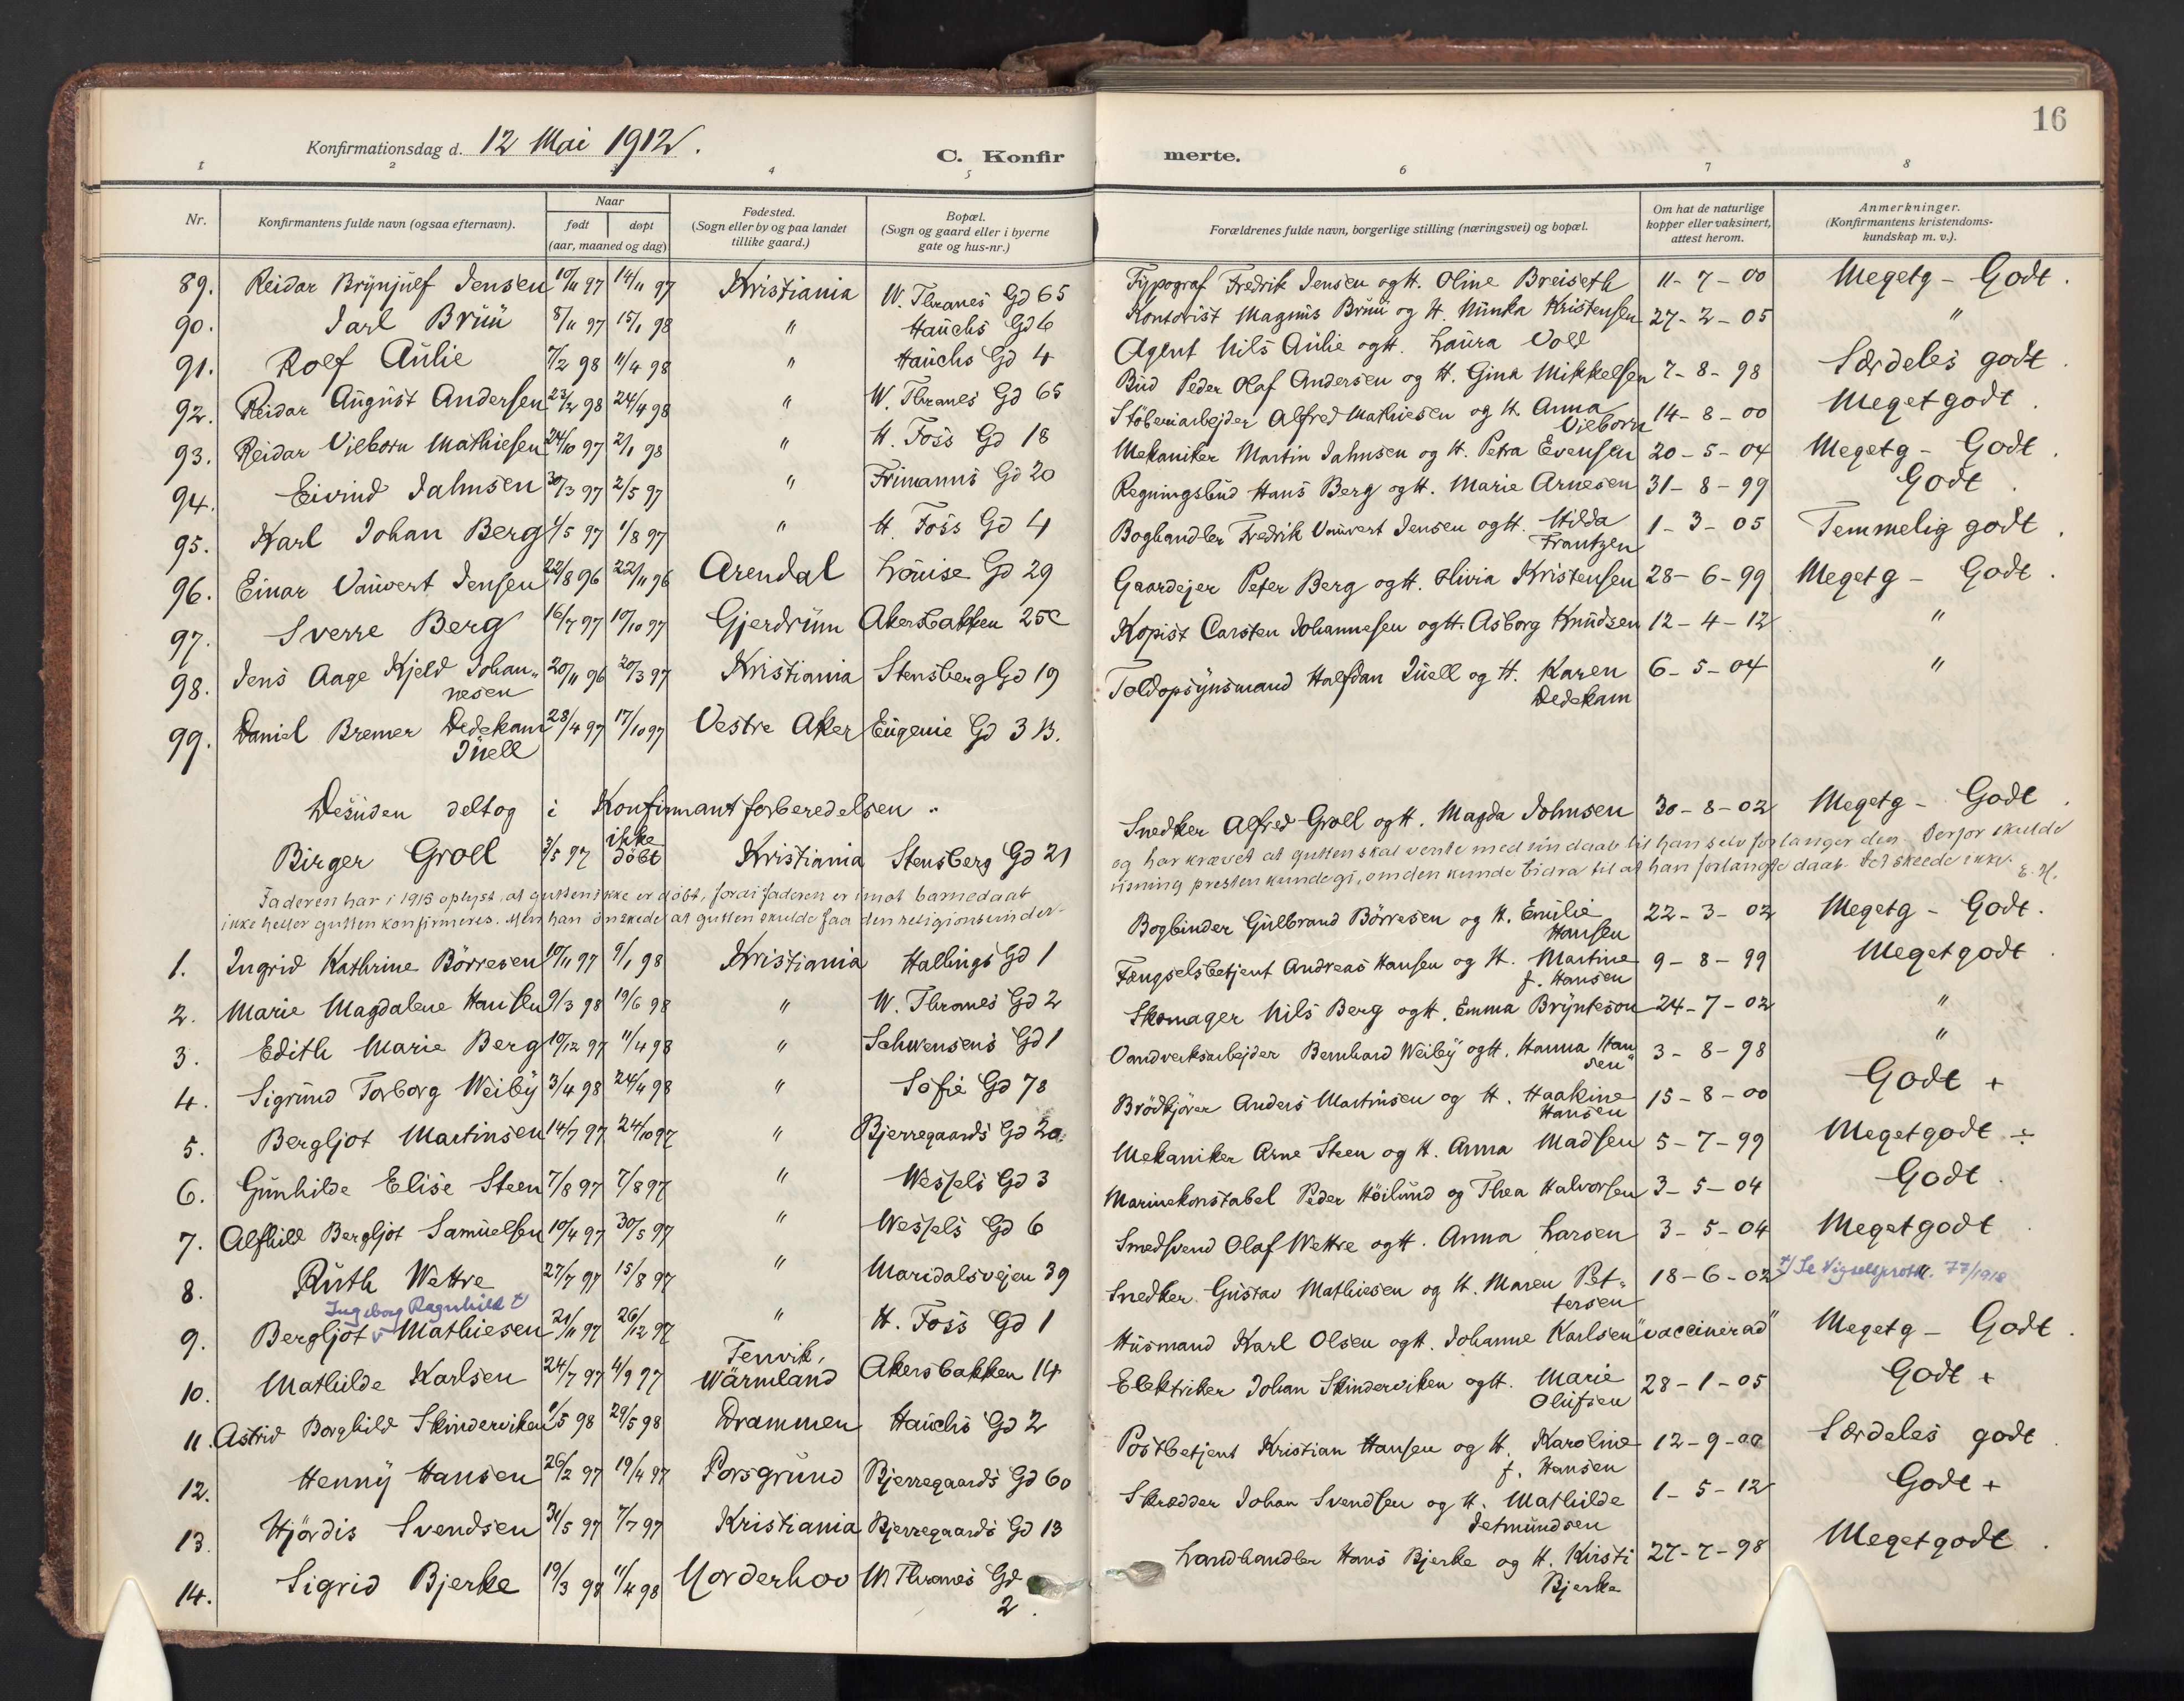 16
Konfirmationsdag d. 12 Mai 1912.
C. Konfir
merte.
1 2 3 4 5 6 7 8
Nr.
Konfirmantens fulde navn (ogsaa efternavn).
Naar
født døpt
(aar, maaned og dag)
Fødested.
(Sogn eller by og paa landet
tillike gaard.)
Bopæl.
(Sogn og gaard eller i byerne
gate og hus-nr.)
Forældrenes fulde navn, borgerlige stilling (næringsvei) og bopæl.
Om hat de naturlige
kopper eller vaksinert,
attest herom.
Anmerkninger.
(Konfirmantens kristendoms-
kundskap m. v.).
89. Reidar Brynjulf Jensen 10/11 97 14/11 97 Kristiania W. Thranes Gd 65 Typograf Fredrik Jensen og H. Oline Breiseth 11-7-00 Megetg - Godt.
90. Jarl Bruu 8/11 97 15/1 98 " Hauchs Gd 6 Kontorist Magnus Bruu og H. Minka Kristensen 27-2-05 "
91. Rolf Aulie 7/2 98 11/4 98 " Hauchs Gd 4 Agent Nils Aulie og H. Laura Voll Særdeles godt.
92. Reidar August Andersen 23/2 98 24/4 98 " W. Thranes Gd 65 Bud Peder Olaf Andersen og H. Gina Mikkelsen 7-8-98 Meget godt.
93. Reidar Vieborn Mathiesen 24/10 97 2/1 98 " H. Foss Gd 18 Støberiarbejder Alfred Mathiesen og H. Anna
Vieborn 14-8-00 Megetg - Godt.
94. Eivind Jahnsen 30/3 97 2/5 97 " Frimanns Gd 20 Mekaniker Martin Jahnsen og H. Petra Evensen 20-5-04 Godt.
95. Karl Johan Berg 1/5 97 1/8 97 " H. Foss Gd 4 Regningsbud Hans Berg og H. Marie Arnesen 31-8-99 Temmelig godt.
96. Einar Vauvert Jensen 22/8 96 22/11 96 Arendal Louise Gd 29 Boghandler Fredrik Vauvert Jensen og H. Hilda
Frantzen 1-3-05 Megetg - Godt.
97. Sverre Berg 16/7 97 10/10 97 Gjerdrum Akersbakken 25c Gaardejer Peter Berg og H. Olivia Kristensen 28-6-99 "
98. Jens Aage Kjeld Johan-
nesen 20/11 96 20/3 97 Kristiania Stensberg Gd 19 Kopist Carsten Johannesen og H. Asborg Knudsen 12-4-12 "
99. Daniel Bremer Dedekam
Juell 28/4 97 17/10 97 Vestre Aker Eugenie Gd 3 B. Toldopsynsmand Halfdan Juell og H. Karen
Dedekam 6-5-04
Desuden deltog i Konfirmantforberedelsen:
Birger Groll 3/5 97 ikke
döbt Kristiania Stensberg Gd 21 Snedker Alfred Groll og H. Magda Johnsen 30-8-02 Megetg - Godt.
Faderen har i 1913 oplyst, at gutten ikke er döbt, fordi faderen er imot barnedaab og har krævet at gutten skal vente med sin daab til han selv forlanger den. Derfor skulde
ikke heller gutten konfirmeres. Men han ønskede at gutten skulde faa den religionsunder-
visning presten kunde gi, om den kunde bidra til at han forlangte daab. Det skeede ikke. E.H.
1. Ingrid Kathrine Börresen 10/11 97 9/1 98 Kristiania Hallings Gd 1 Bogbinder Gulbrand Börresen og H. Emilie
Hansen 22-3-02 Megetg - Godt.
2. Marie Magdalene Hansen 9/3 98 19/6 98 " W. Thranes Gd 2 Fængselsbetjent Andreas Hansen og H. Martine
f. Hansen 9-8-99 Meget godt
3. Edith Marie Berg 10/12 97 11/4 98 " Schwensens Gd 1 Skomager Nils Berg og H. Emma Brynteson 24-7-02 "
4. Sigrund Torborg Weiby 3/4 98 24/4 98 " Sofie Gd 78 Vandverksarbejder Bernhard Weiby og H. Hanna Han
sen 3-8-98 "
5. Bergljot Martinsen 14/7 97 24/10 97 " Bjerregaards Gd 2a Brödkjører Anders Martinsen og H. Haakine
Hansen 15-8-00 Godt +
6. Gunhilde Elise Steen 7/8 97 7/8 97 " Wessels Gd 3 Mekaniker Arne Steen og H. Anna Madsen 5-7-99 Meget godt ÷
7. Alfhild Bergljot Samuelsen 10/4 97 30/5 97 " Wessels Gd 6 Marinekonstabel Peder Höilund og Thea Halvorsen 3-5-04 Godt.
8. Ruth Wettre 27/7 97 15/8 97 " Maridalsvejen 39 Smedsvend Olaf Wettre og H. Anna Larsen 3-5-04 Meget godt.
9. Ingeborg Ragnhild
Bergljot Mathiesen 21/11 97 26/12 97 " H. Foss Gd 1 Snedker Gustav Mathiesen og H. Maren Pet-
tersen 18-6-02 Se Vigselsprotk. 77/1918
Megetg - Godt.
10. Mathilde Karlsen 24/7 97 4/9 97 Fenvik,
Wärmland Akersbakken 14 Husmand Karl Olsen og H. Johanne Karlsen "vaccinerad" Godt +
11. Astrid Borghild Skinderviken 1/5 98 29/5 98 Drammen Hauchs Gd 2 Elektriker Johan Skinderviken og H. Marie
Olufsen 28-1-05
12. Henny Hansen 26/2 97 19/4 97 Porsgrund Bjerregaards Gd 60 Postbetjent Kristian Hansen og H. Karoline
f. Hansen 12-9-00 Særdeles godt.
13. Hjördis Svendsen 31/5 97 7/7 97 Kristiania Bjerregaards Gd 13 Skrædder Johan Svendsen og H. Mathilde
Jetmundsen 1-5-12 Godt +
14. Sigrid Bjerke 19/3 98 11/4 98 Norderhov W. Thranes Gd
2. Landhandler Hans Bjerke og H. Kirsti
Bjerke 27-7-98 Meget godt.